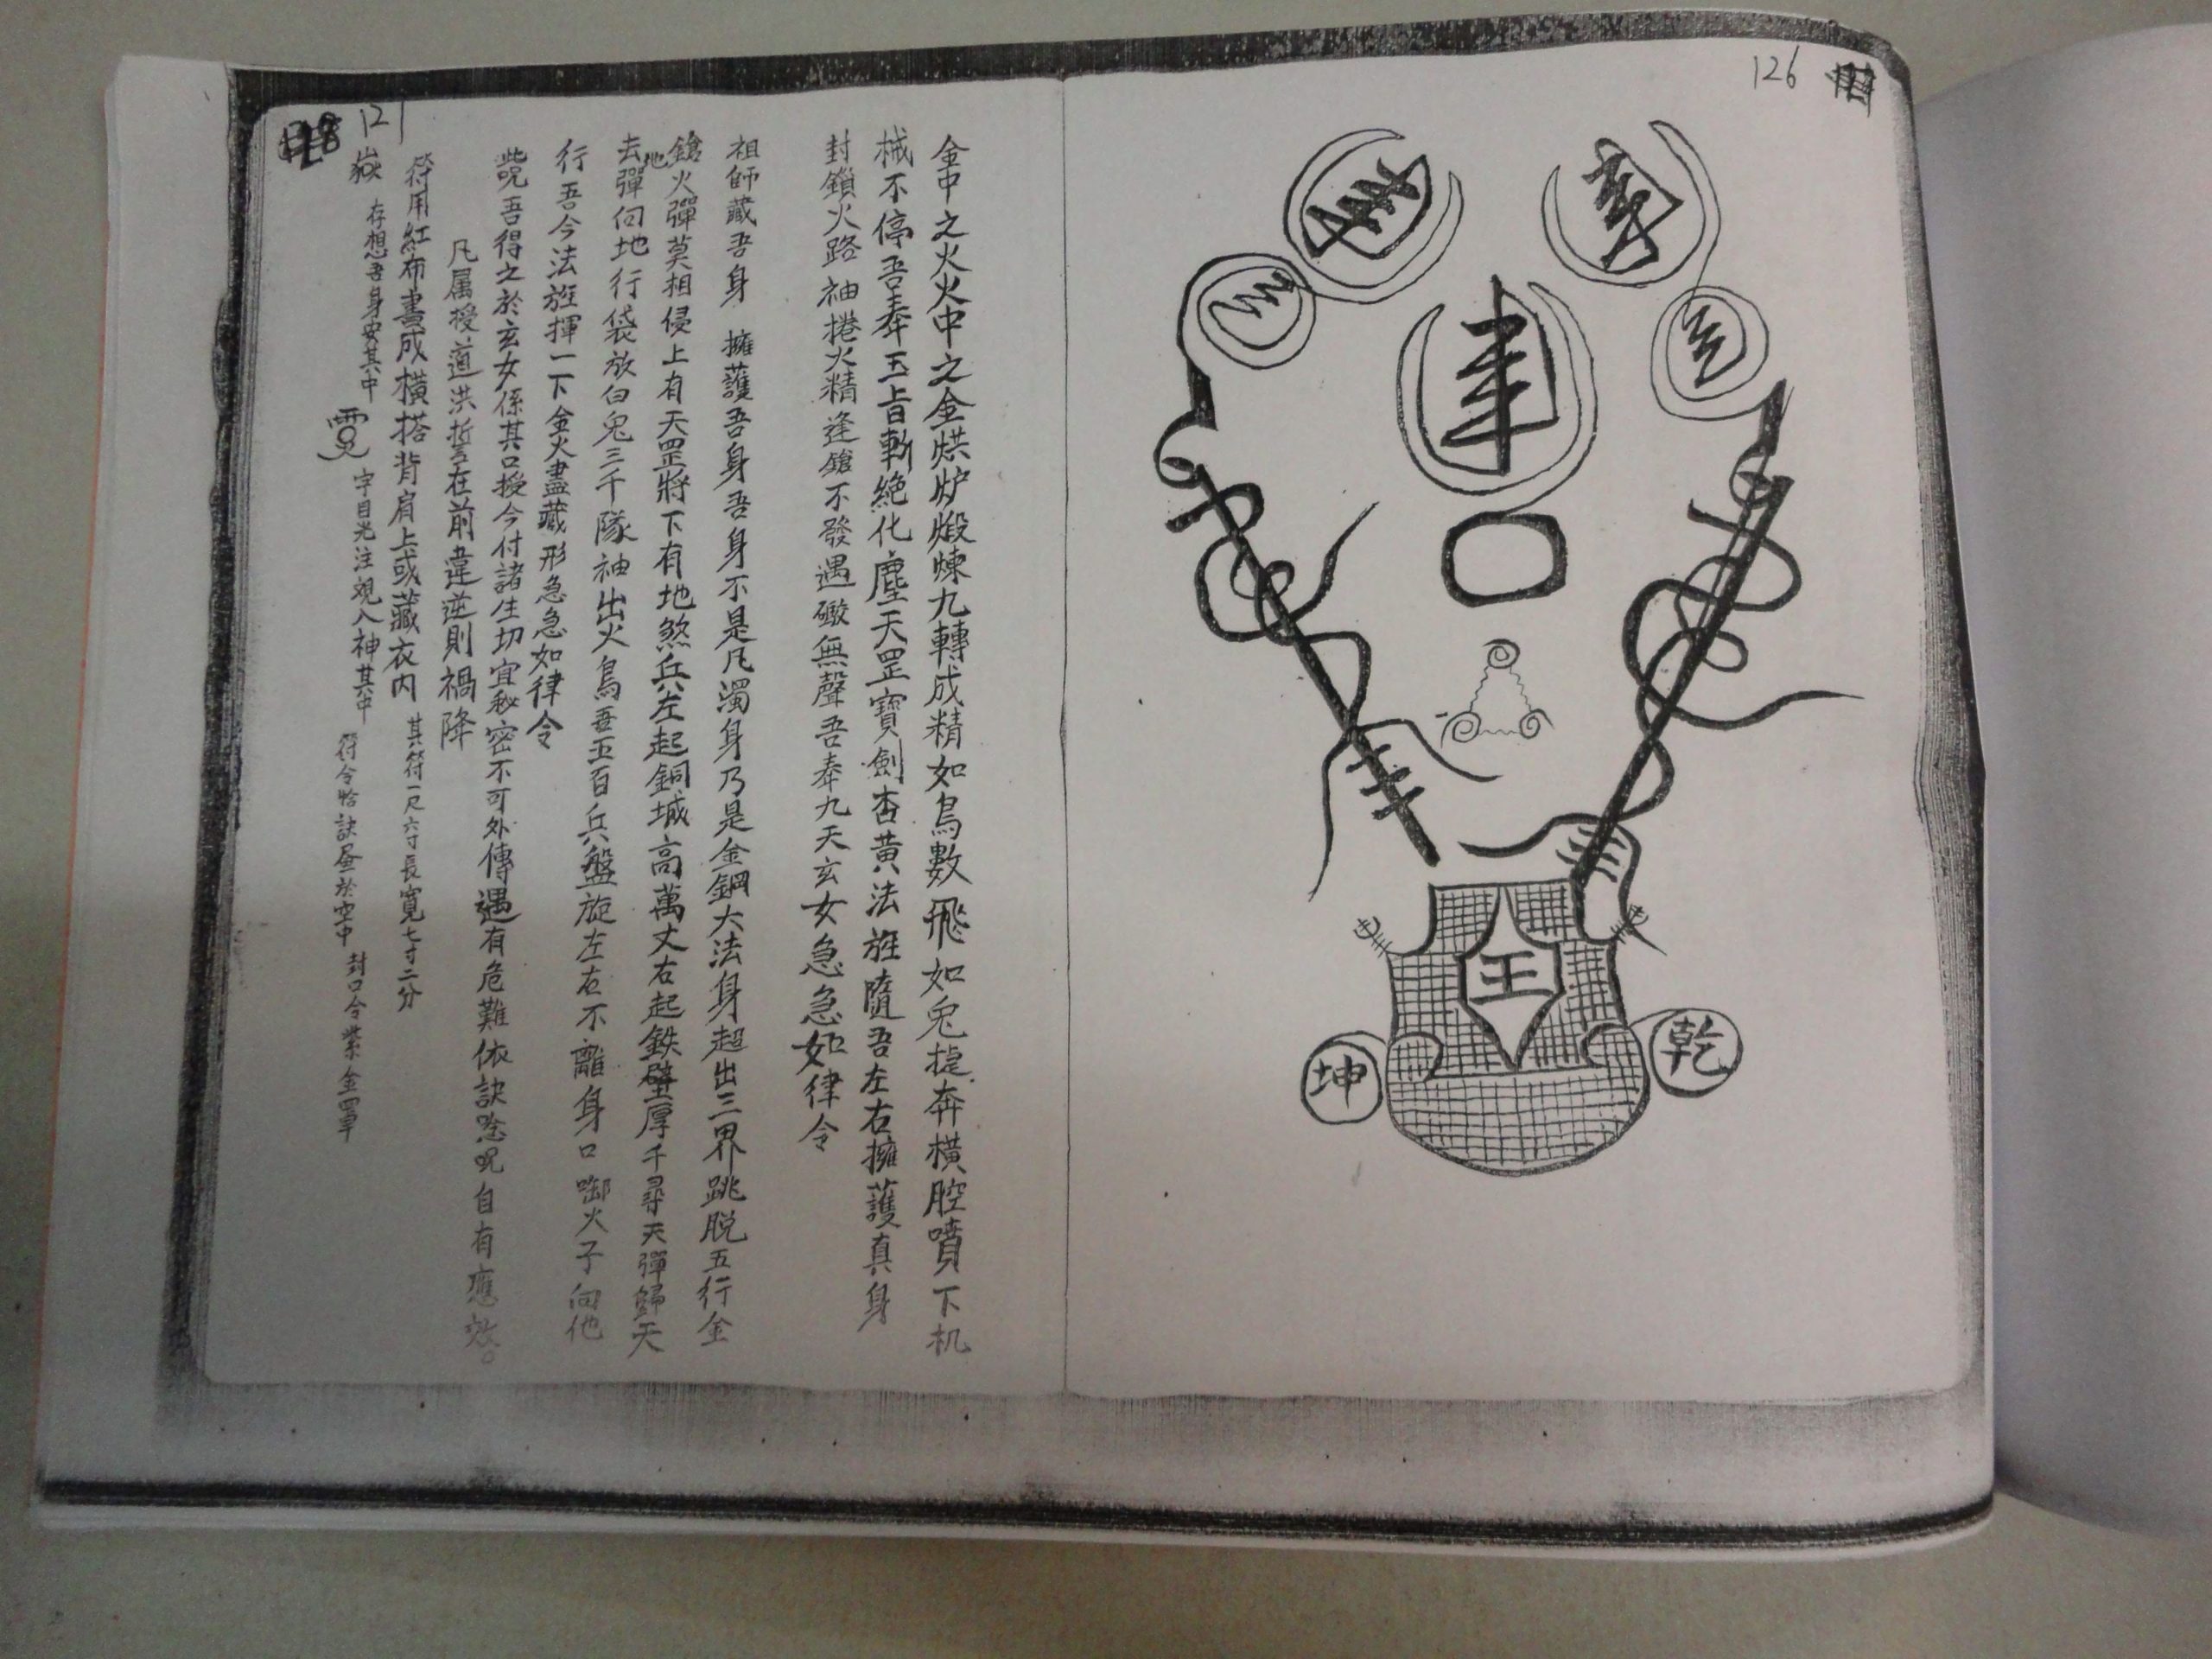 126
王
乾
坤
127
金中之火火中之金烘炉煅煉九轉成精如鳥數飛如兔捷奔橫腔噴下机
械不停吾奉玉旨斬絕化塵天罡寶劍杏黃法旌隨吾左右擁護真身
封鎖火路袖捲火精逢鎗不發遇礮無聲吾奉九天玄女急急如律令
祖師藏吾身 擁護吾身吾身不是凡濁身乃是金鋼大法身超出三界跳脱五行金
鎗火彈莫相侵上有天罡將下有地煞兵左起銅城高萬丈右起鉄壁厚千尋天彈歸天
去地彈向地行袋放白兔三千隊袖出火鳥五百兵盤旋左右不離身口啣火子向他
行吾今法旌揮一下金火盡藏形急急如律令
此呪吾得之於玄女係其口授今付諸生切宜秘密不可外傳遇有危難依訣念呪自有應效。
凡属授道洪誓在前違逆則禍降
符用紅布書成橫搭背肩上或藏衣内 其符一尺六寸長寬七寸二分
嶽 存想吾身安其中 字目光注視入神其中 符令恰訣昼於空中 封口令紫金罩